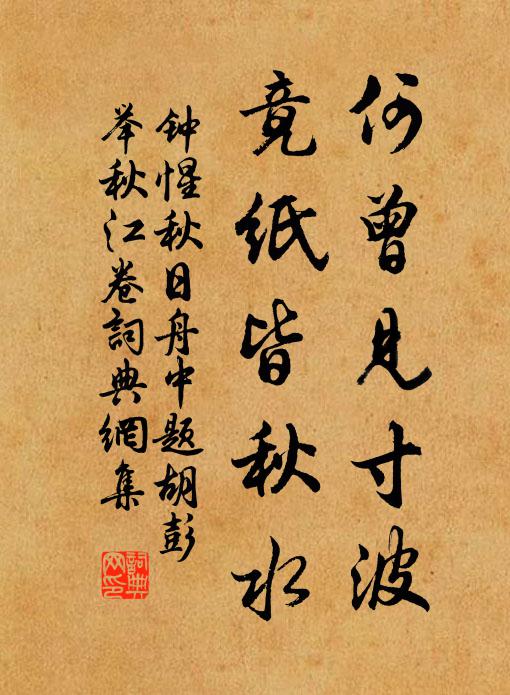 何曾見寸波
竟紙皆秋水
钟惺秋日舟中题胡彭
举秋江卷詞典網集
詞典
网印